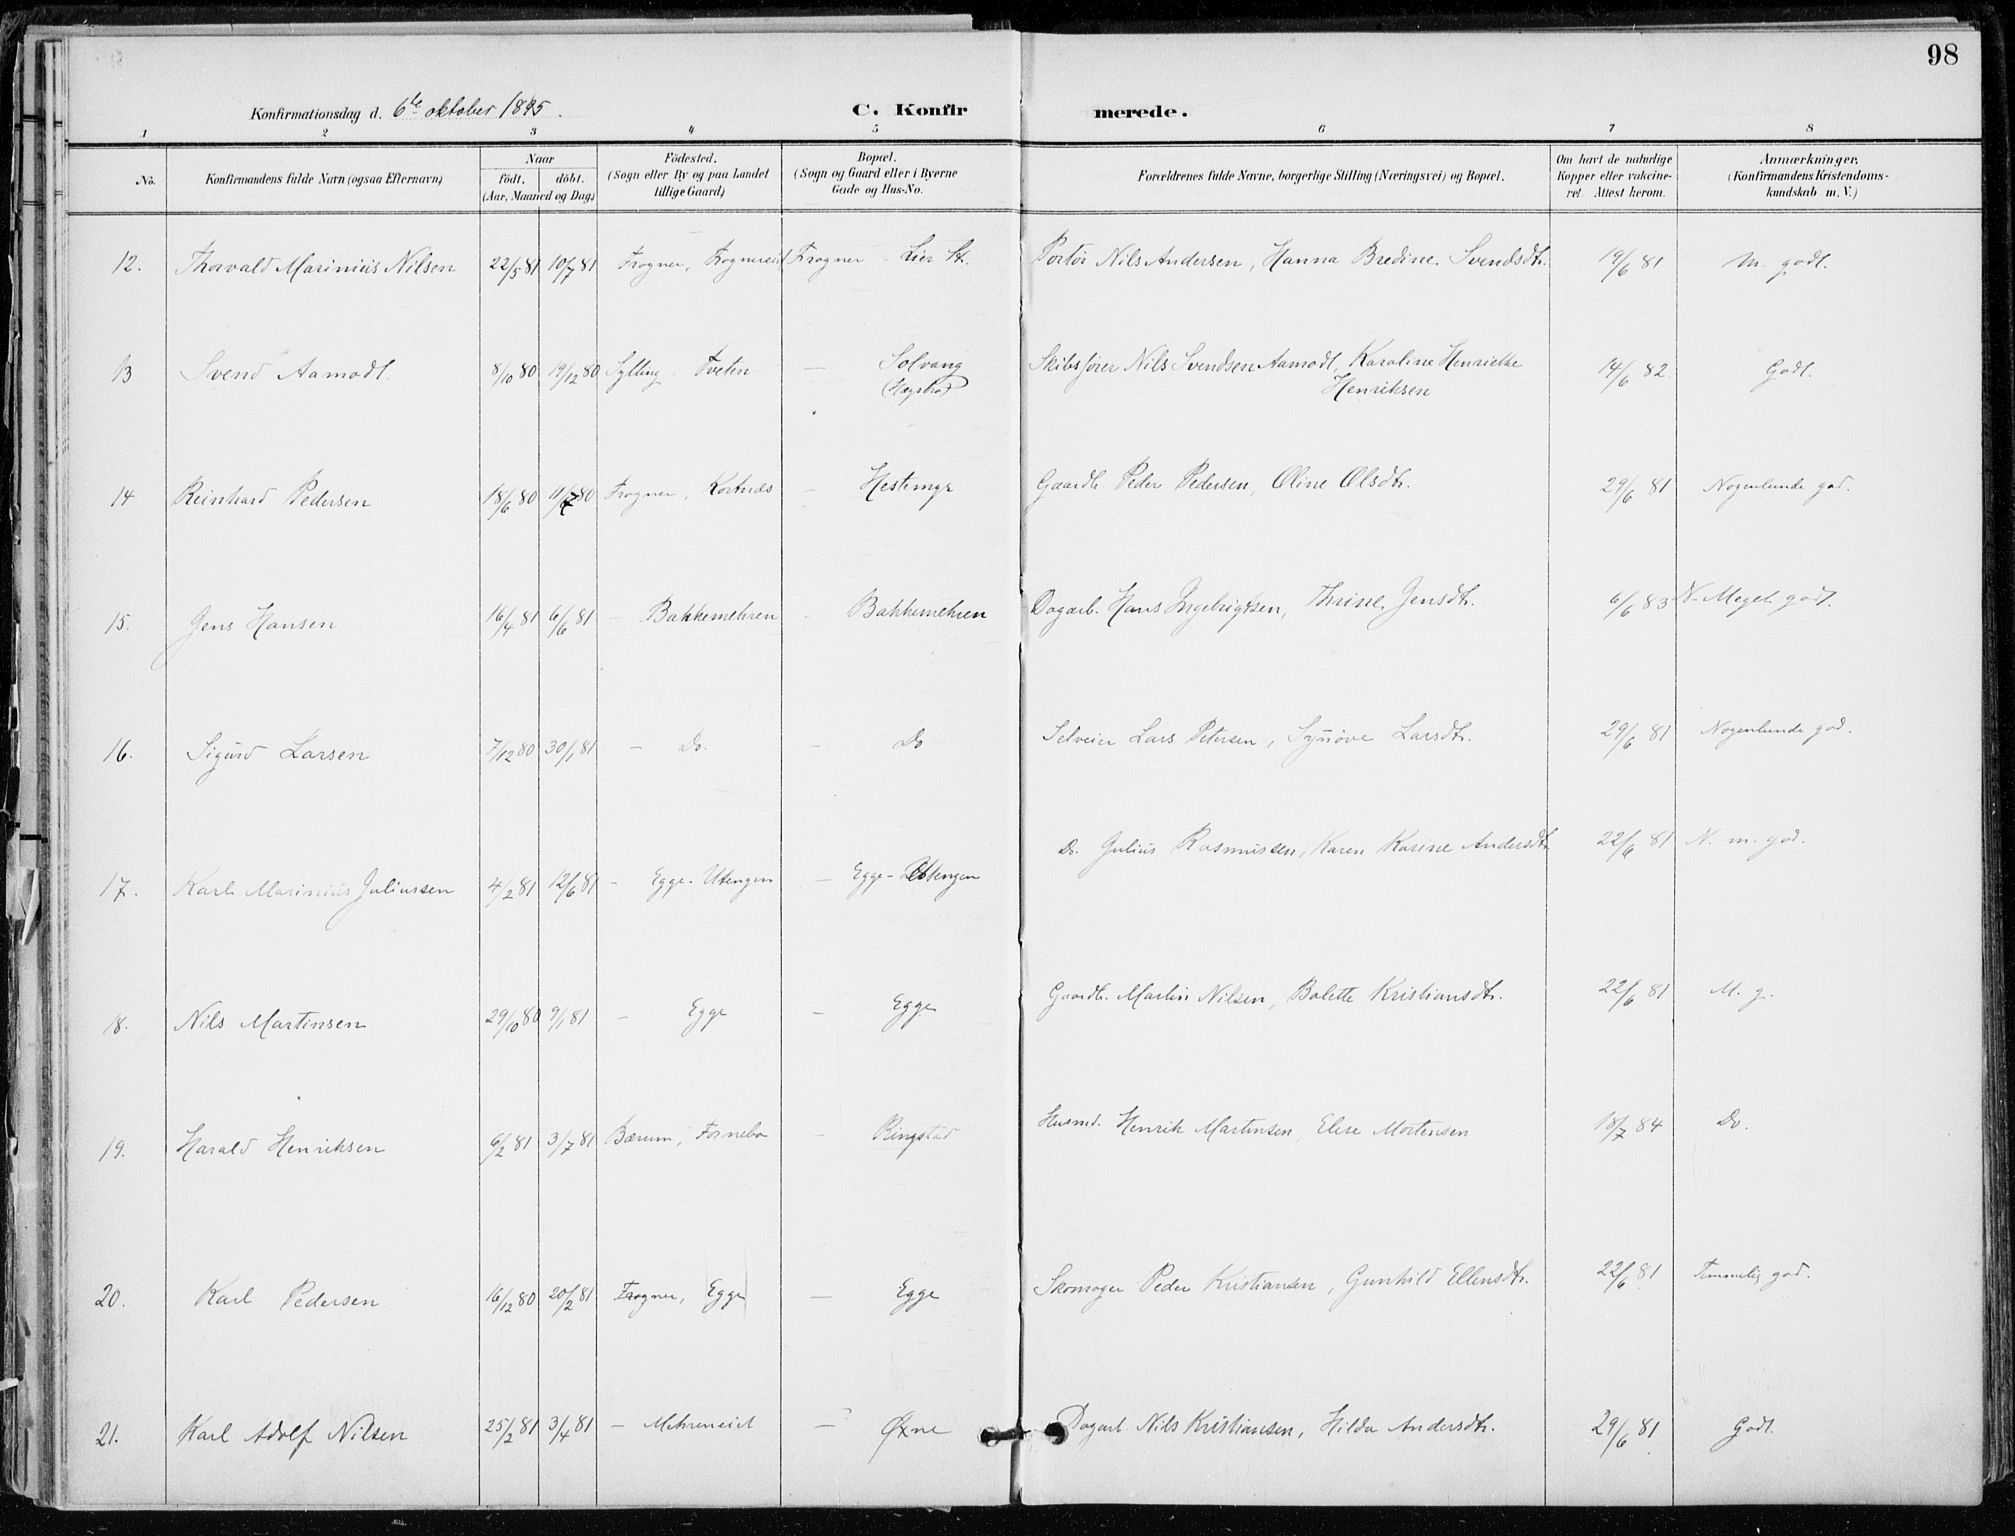 98
Konfirmationsdag d. 6te oktober 1895.
C. Konfirmerede.
1 2 3 4 5 6 7 8
No.
Konfirmandens fulde Navn (ogsaa Efternavn)
Naar
født. døbt.
(Aar, Maaned og Dag)
Fødested.
(Sogn eller By og paa Landet
tillige Gaard)
Bopæl.
(Sogn og Gaard eller i Byerne
Gade og Hus-No.
Forældrenes fulde Navne, borgerlige Stilling (Næringsvei) og Bopæl.
Om havt de naturlige
Kopper eller vakcine-
ret. Attest herom.
Anmærkninger.
(Konfirmandens Kristendoms-
kundskab m. V.)
12. Thorvald Marinius Nilsen 22/5 81 10/7 81 Frogner, Frognereiet Frogner - Lier St. Portør Nils Andersen, Hanna Bredine Svendsdtr. 19/6 81 M. godt.
13 Svend Aamodt. 8/10 80 19/12 80 Sylling. Tveten — Solvang Skibsfører Nils Svendsen Aamodt, Karoline Henriette 14/6 82. Godt.
Henriksen
14 Reinhard Pedersen 18/6 80 11/7 80 Frogner, Kortnæs — Hestemyr Gaardb. Peder Pedersen, Oline Olsdtr. 29/6 81 Nogenlunde god.
15. Jens Hansen 16/4 81 6/6 81 — Bakkemehren — Bakkemehren Dagarb. Hans Ingebrigtsen, Thrine Jensdtr. 6/6 83 N. Meget godt.
16. Sigurd Larsen 7/12 80 30/1 81 — Do. — Do Selveier Lars Petersen, Synøve Larsdtr. 29/6 81 Nogenlunde god.
17. Karl Marinius Juliussen 4/2 81 12/6 81 — Egge-Utengen — Egge-Utengen Do. Julius Rasmussen, Karen Karine Andersdtr. 22/6 81 N. m. god.
18. Nils Martinsen 29/10 80 9/1 81 — Egge — Egge Gaardb. Martin Nilsen, Bolette Kristiansdtr. 22/6 81 M. g.
19. Harald Henriksen 6/2 81 3/7 81 Bærum, Fornebo — Ringstad Husmd. Henrik Martinsen, Elise Mortensen 18/7 84 Do.
20. Karl Pedersen 16/12 80 20/2 81 Frogner, Egge — Egge Skomager Peder Kristiansen, Gunhild Ellensdtr. 22/6 81 Temmelig god.
21. Karl Adolf Nilsen 25/2 81 3/4 81 — Mehreneiet — Øxne Dagarb. Nils Kristiansen, Hilda Andersdtr. 29/6 81 Godt.